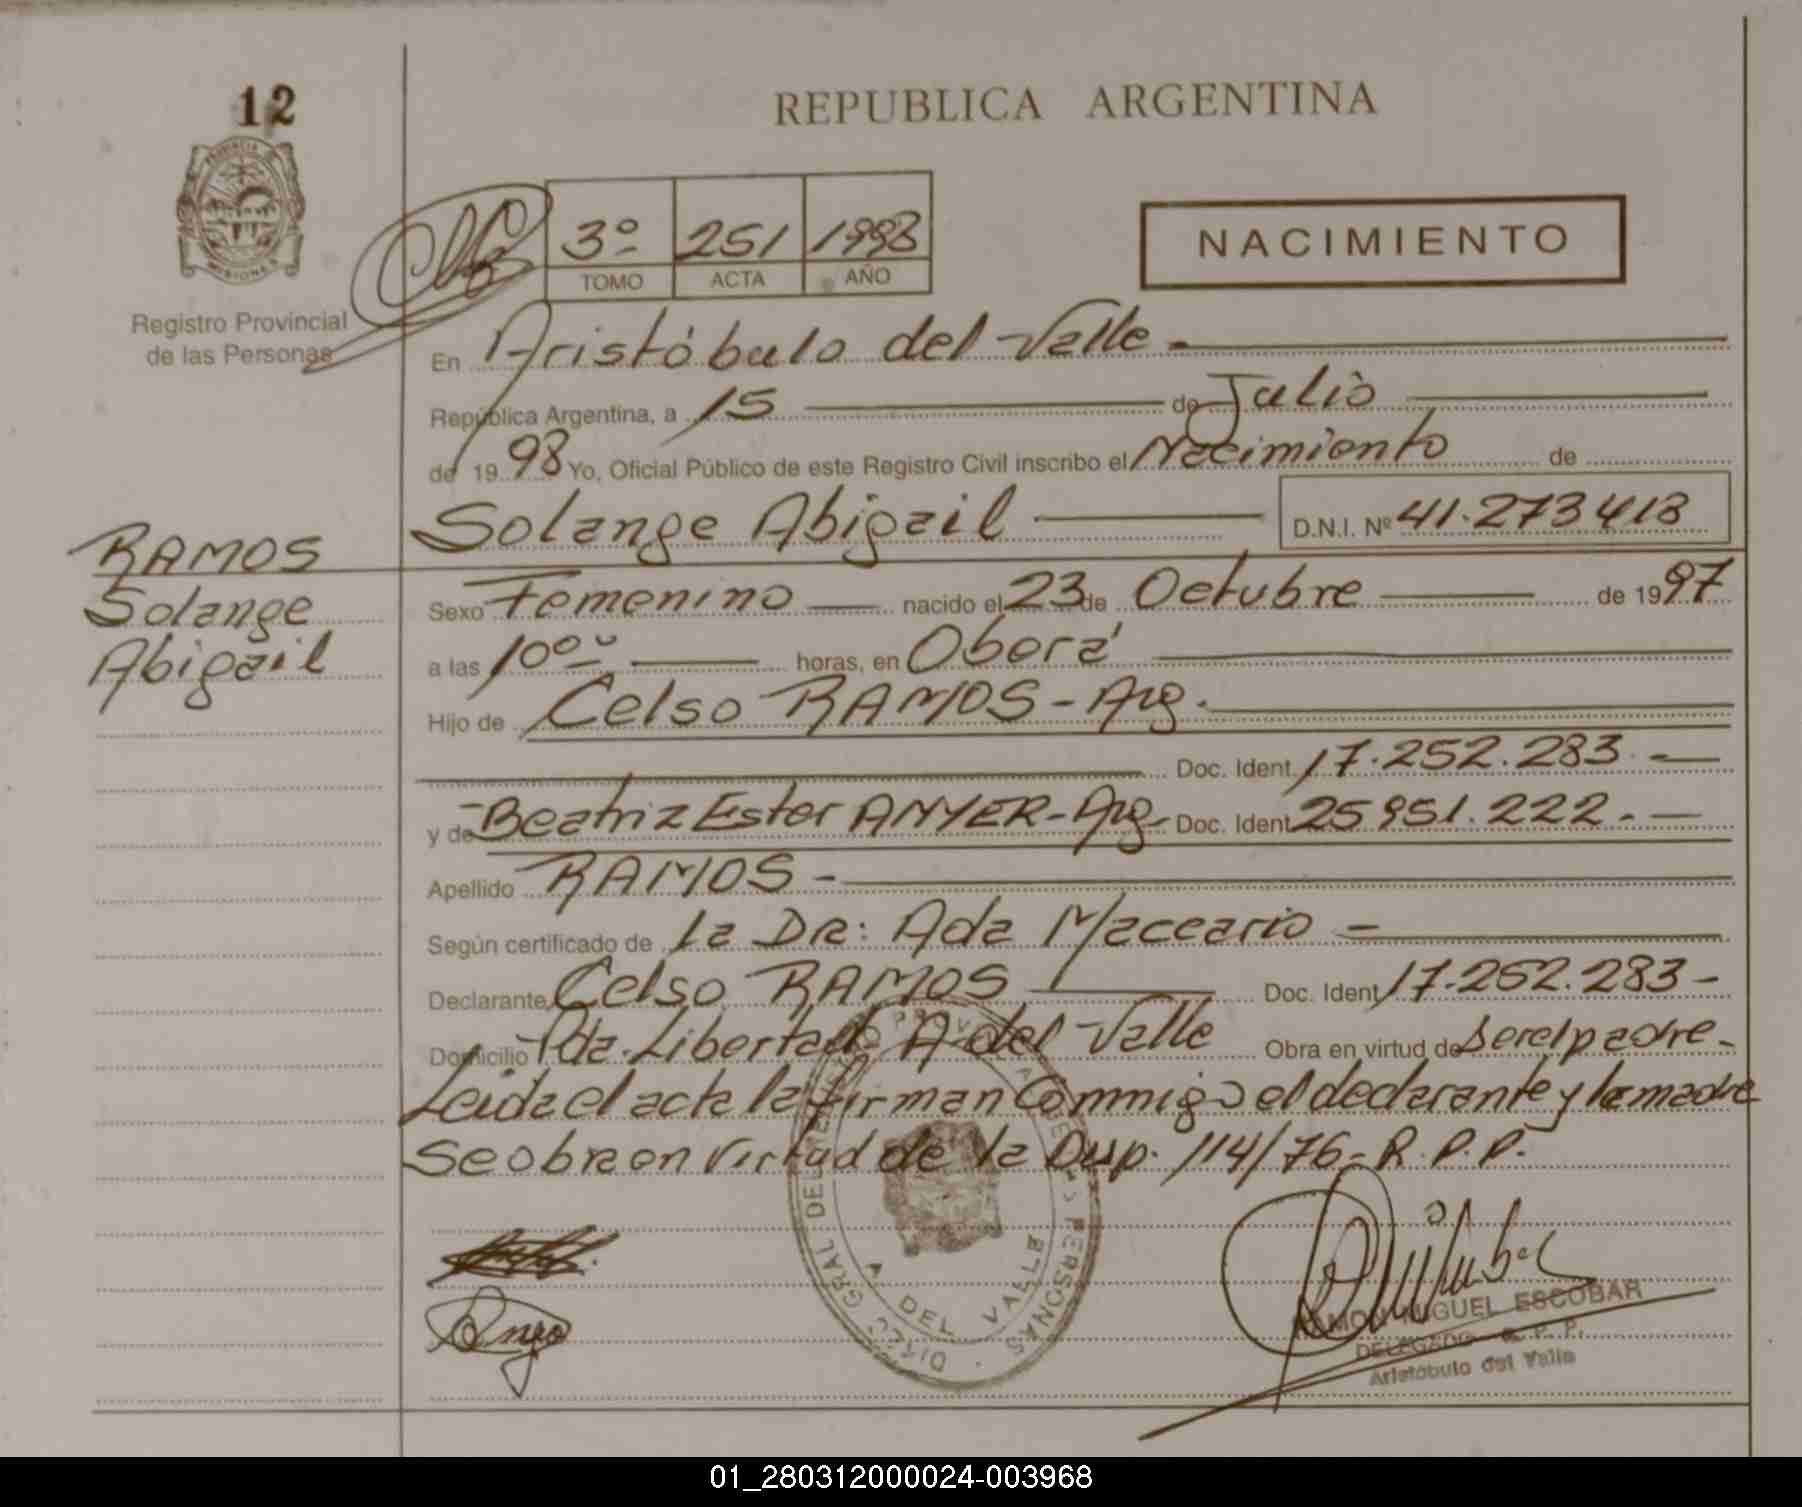 12
REPUBLICA ARGENTINA
PROVINCIA DE
MISIONES
Registro Provincial
de las Personas
3º 251 1998
TOMO ACTA AÑO
NACIMIENTO
En Aristóbulo del Valle.
República Argentina, a 15 de Julio
de 1998 Yo, Oficial Público de este Registro Civil inscribo el Nacimiento de
Solange Abigail D.N.I. Nº 41.273413
RAMOS
Solange
Abigail
Sexo Femenino nacido el 23 de Octubre de 1997
a las 10 horas, en Oberá
Hijo de Celso RAMOS - Arg.
Doc. Ident. 17.252.283. -
y de Beatriz Ester ANYER - Arg. Doc. Ident 25951.222. -
Apellido RAMOS -
Según certificado de La Dra: Ada Maceario -
Declarante Celso RAMOS Doc. Ident 17.252.283 -
Domicilio Pda. Libertad A del Valle Obra en virtud de ser el padre -
Leida el acta la firman Conmigo el declarante y la madre
Se obra en Virtud de la Disp. 114/76 - R.P.P.
DIREC. GRAL DEL PROVINCIAL DE LAS PERSONAS
A DEL VALLE
RAMON MIGUEL ESCOBAR
DELEGADO R. P. P.
Aristóbulo del Valle
01_280312000024-003968